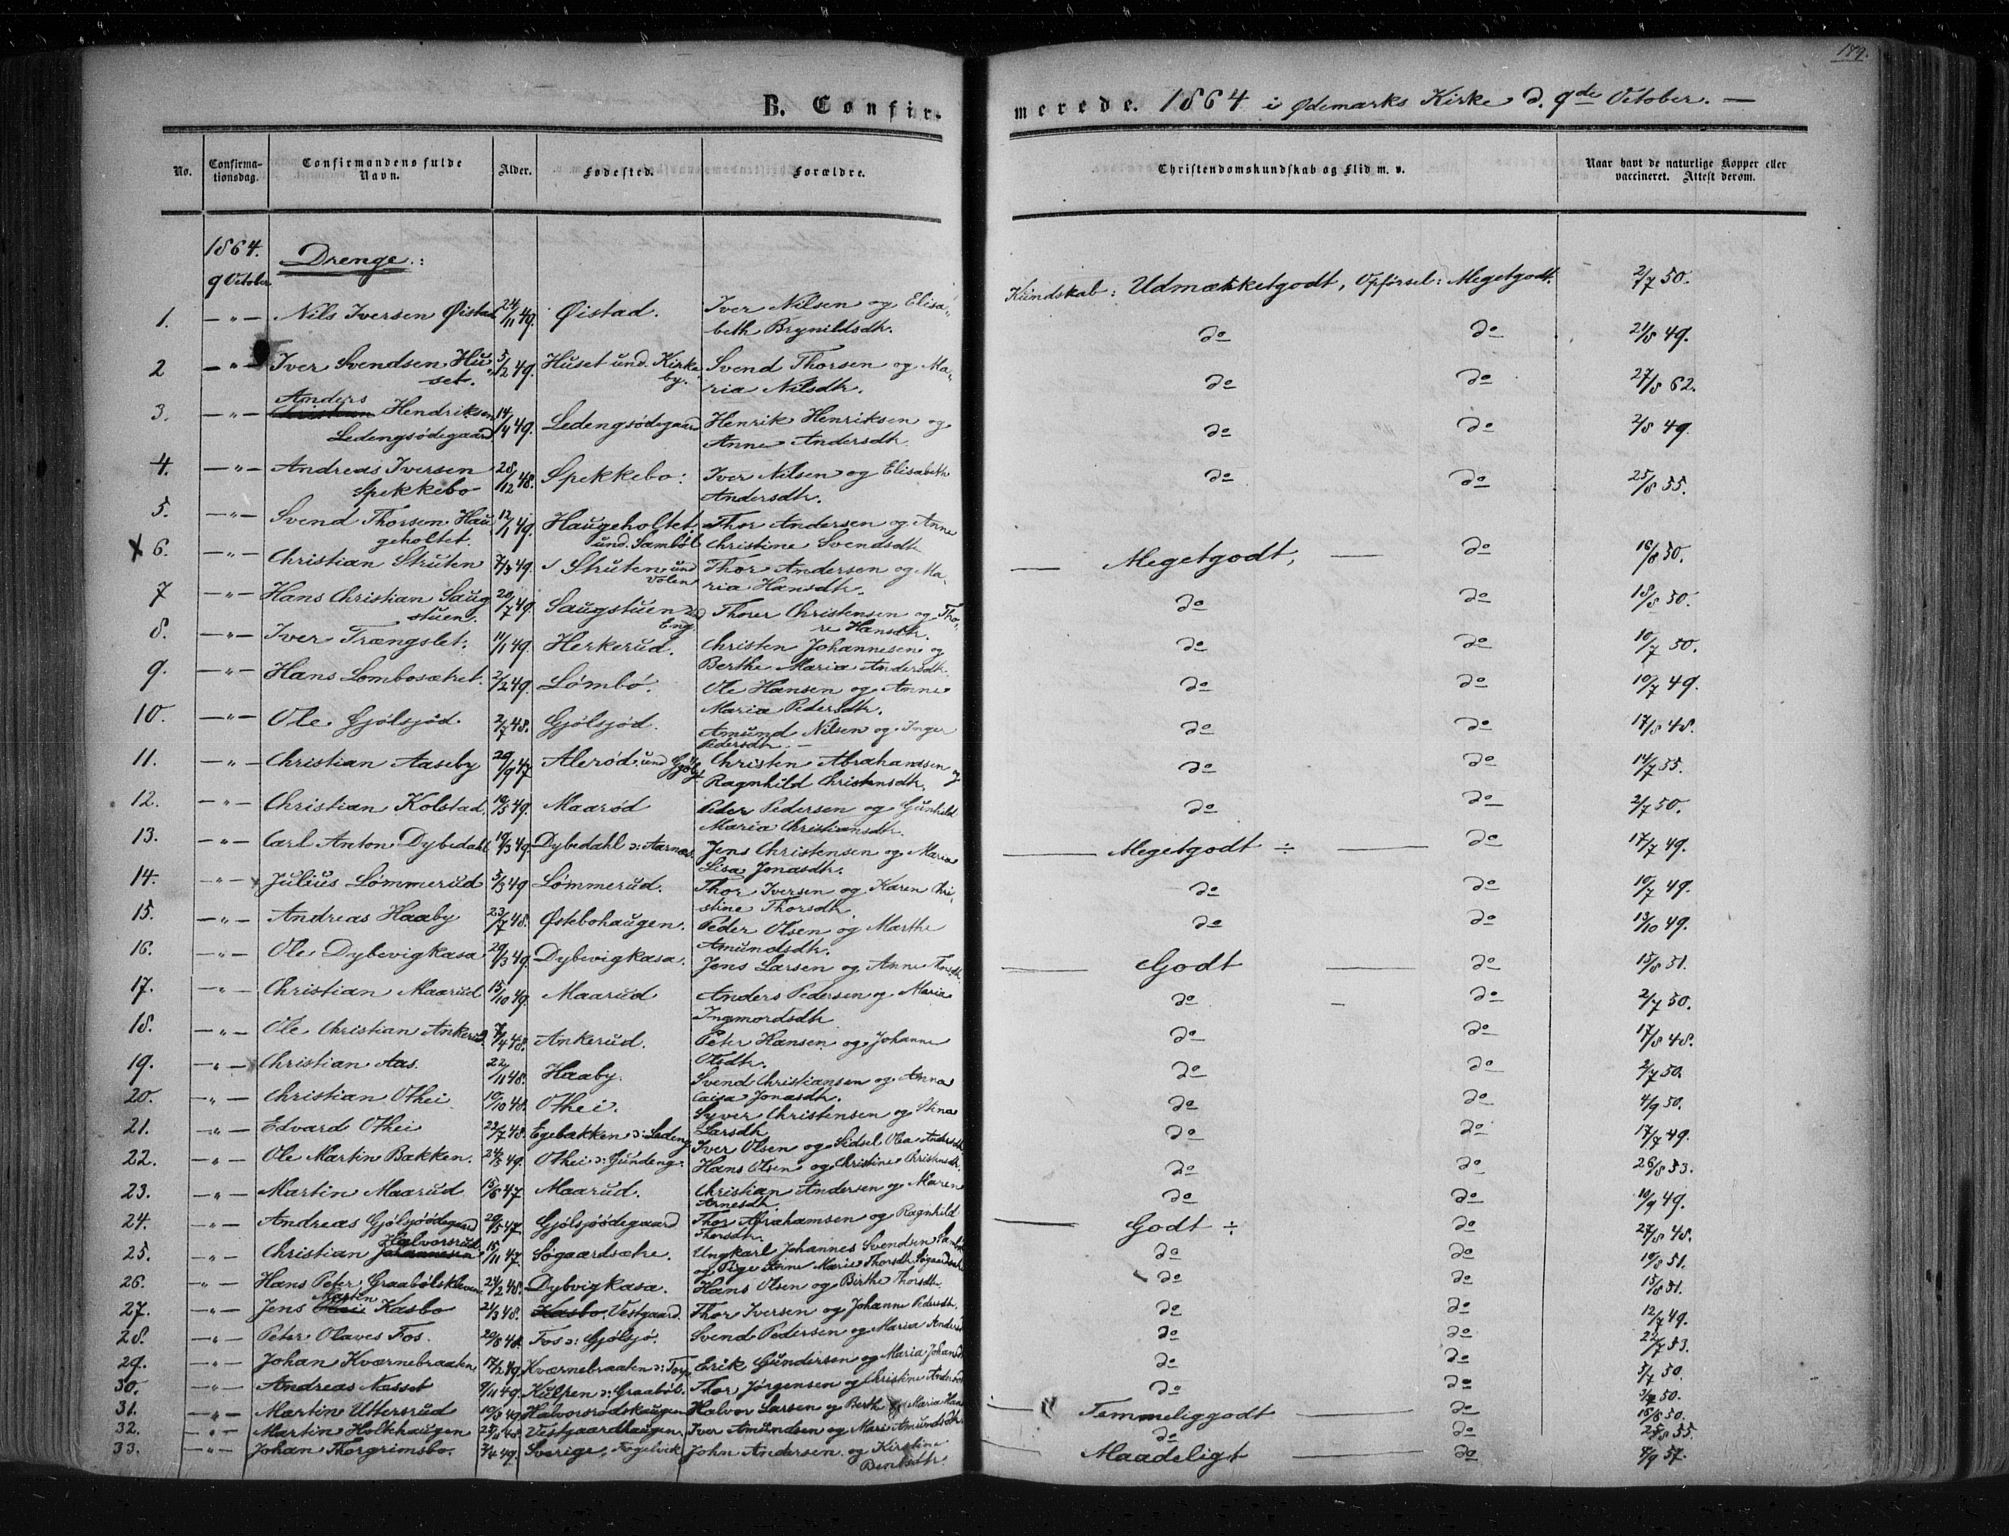 189.
B. Confirmerede. 1864 i Ødemarks Kirke d. 9de October. —
No. | Confirmationsdag. | Confirmandens fulde Navn. | Alder. | Fødested. | Forældre. | Christendomskundskab og Flid m. v. | Naar havt de naturlige Kopper eller vaccineret. Attest derom.
1864.
9 October
Drenge:
1. — " — Nils Iversen Øistad 24/11 49. Øistad. Iver Nilsen og Elisabeth Brynildsdtr. Kundskab: Udmærketgodt, Opførsel: Megetgodt. 2/7 50.
2 — " — Iver Svendsen Huset. 5/2 49. Huset und. Kirkeby. Svend Thorsen og Maria Nilsdtr. do do 21/8 49.
3. — " — Anders Hendriksen Ledengsødegaard 14/4 49. Ledengsødegaard Henrik Henriksen og Anne Andersdtr. do do 27/8 62.
4. — " — Andreas Iversen Spekkebo 28/12 48. Spekkebo: Iver Nilsen og Elisabeth Andersdtr. do do 2/8 49.
5. — " — Svend Thorsen Haugeholtet. 12/1 49. Haugeholtet und. Sambøl Thor Andersen og Anne Christine Svendsdtr. do do 25/8 55.
x 6. — " — Christian Struten 7/3 49. Struten und Volen Thor Andersen og Maria Hansdtr. — Megetgodt, — do 16/8 50.
7 — " — Hans Christian Saugstuen. 20/7 49. Saugstuen und Eng. Thorer Christensen og Thore Hansdtr. do do 18/8 50.
8. — " — Iver Trængslet: 11/1 49. Herkerud. Christen Johannesen og Berthe Maria Andersdtr. do do 10/7 50.
9. — " — Hans Lombosætret. 2/2 49. Lømbø. Ole Hansen og Anne Maria Pedersdtr. do do 10/7 49.
10. — " — Ole Gjølsjød. 2/7 48. Gjølsjød. Amund Nilsen og Inger Pedersdtr. — do do 17/8 48.
11. — " — Christian Aaseby 29/9 47 Alerød und Gjølsj Christen Abrahamsen og Ragnhild Christensdtr. do do 14/7 55.
12. — " — Christian Kolstad 10/3 49. Maarød Peder Pedersen og Gunhild Maria Christiansdtr. do do 2/7 50.
13. — " — Carl Anton Dybedahl 19/3 49. Dybedahl u: Aarnæs. Jens Christensen og Maria Lisa Jonasdtr. — Megetgodt ÷ — do 17/7 49.
14. — " — Julius Lømmerud 5/3 49 Lømmerud. Thor Iversen og Karen Christine Thorsdtr. do do 10/7 49.
15. — " — Andreas Haaby 23/7 48. Østebohaugen. Peder Olsen og Marthe Amundsdtr. do do 13/10 49.
16. — " — Ole Dybevigkasa 29/3 49. Dybevigkasa. Jens Larsen og Anne Thorsdtr. — Godt — do 15/8 51.
17. — " — Christian Maarud 15/10 49. Maarud Anders Pedersen og Maria Ingmordsdtr do do 2/7 50.
18. — " — Ole Christian Ankerud. 7/4 48. Ankerud. Peter Hansen og Johanne Olsdtr. do do 17/8 48.
19. — " — Christian Aas. 22/11 48. Haaby. Svend Christiansen og Anna Caisa Jonasdtr. do do 2/7 50.
20. — " — Christian Othei 10/10 48. Othei. Syver Christensen og Stina Larsdtr. do do 4/9 50.
21. — " — Edvard Othei 22/7 48. Egebakken u: Ledeng Iver Olsen og Sidsel Olea Andersdtr do do 17/7 49.
22. — " — Ole Martin Bakken. 24/3 49. Othei u: Gundeng. Hans Olsen og Christine Christensdtr. do do 26/8 53.
23. — " — Martin Maarud 15/6 47 Maarud. Christian Andersen og Maren Arnesdtr. do do 10/9 49.
24. — " — Andreas Gjølsjöødegaard 29/5 47 Gjølsjöødegaard Thor Abrahamsen og Ragnhild Thorsdtr. — Godt ÷ do 27/8 48.
25. — " — Christian Johannesen Halvorsrud 15/11 47. Søgaardsætre. Ungkarl Johannes Svendsen og Pige Stine Marie Thorsdtr Søgaards do do 10/8 51.
26. — " — Hans Peter Graabølskleven 24/2 48. Dybvigkasa. Hans Olsen og Birthe Thorsdtr. do do 15/8 51.
27. — " — Jens Martin Kasbo 2/3 48. Kasbo. Vestgaard. Thor Iversen og Johanne Pedersdtr. do do 12/7 49.
28. — " — Peter Olaves Fos. 20/8 48. Fos u: Gjølsjø. Svend Pedersen og Maria Andersd do do 22/7 53.
29. — " — Johan Kværnebraaten 17/2 49. Kværnebraaten u: Torp Erik Gundersen og Maria Johansd do do 5/7 50.
30. — " — Andreas Næsset 9/11 49. Kulpen u: Graabøl. Thor Jørgensen og Christine Andersd do do 3/7 50.
31. — " — Martin Uttersrud 10/3 49 Halvorsrødskaugen Halvor Larsen og Berthe Maria Hans — Temmeliggodt — do 16/8 50.
32. — " — Martin Holkhaugen Vestgaardhaugen. Iver Amundsen og Mari Amundsdtr do do 25/8 55.
33. — " — Johan Thorgrimsbo. 3/4 49. Sverige, Fogelvik John Andersen og Kirstine Bentsdtr. — Maadeligt — do 4/9 57.